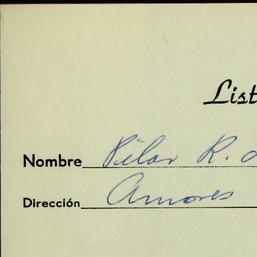 List
Nombre Pilar R. d
Dirección Amores